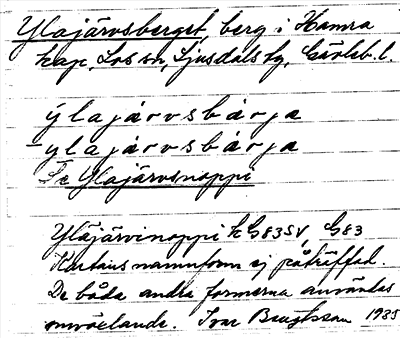 Ylajärvsberget, berg i Hamra
kap, Los sn, Ljusdals tg, Gävleb. l.
ýlajárvsbárja
-ylajárvsbárja
Se Ylajärvsnoppi
Yläjärvinoppi k G83SV, G83
Kartans namnform ej påträffad.
De båda andra formerna användas
omväxlande. Ivar Bengtsson 1935